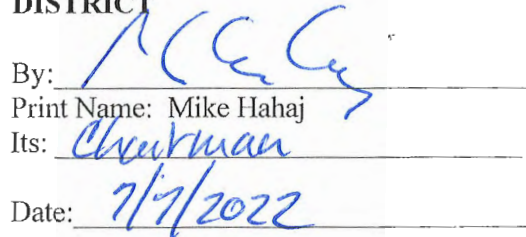 DISTRICT
By:
Print Name: Mike Hahaj
Its: Chairman
Date: 7/7/2022